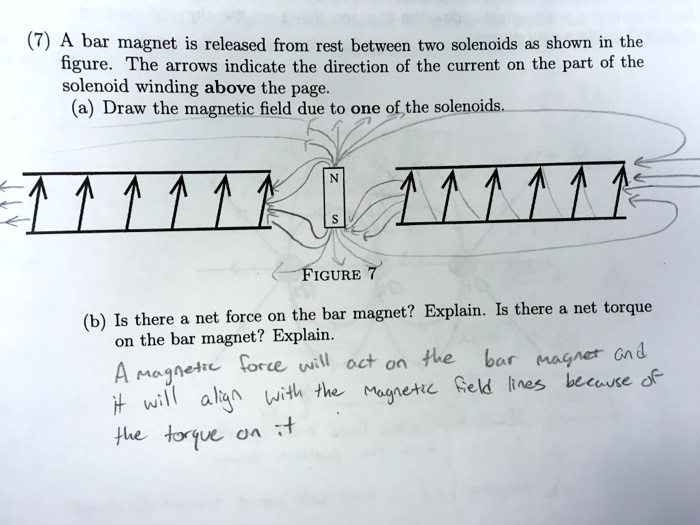 (7) A bar magnet is released from rest between two solenoids as shown in the
figure. The arrows indicate the direction of the current on the part of the
solenoid winding above the page.
(a) Draw the magnetic field due to one of the solenoids.
N
S
FIGURE 7
(b) Is there a net force on the bar magnet? Explain. Is there a net torque
on the bar magnet? Explain.
A magnetic force will act on the bar magnet and
it will align with the magnetic field lines because of
the torque on it